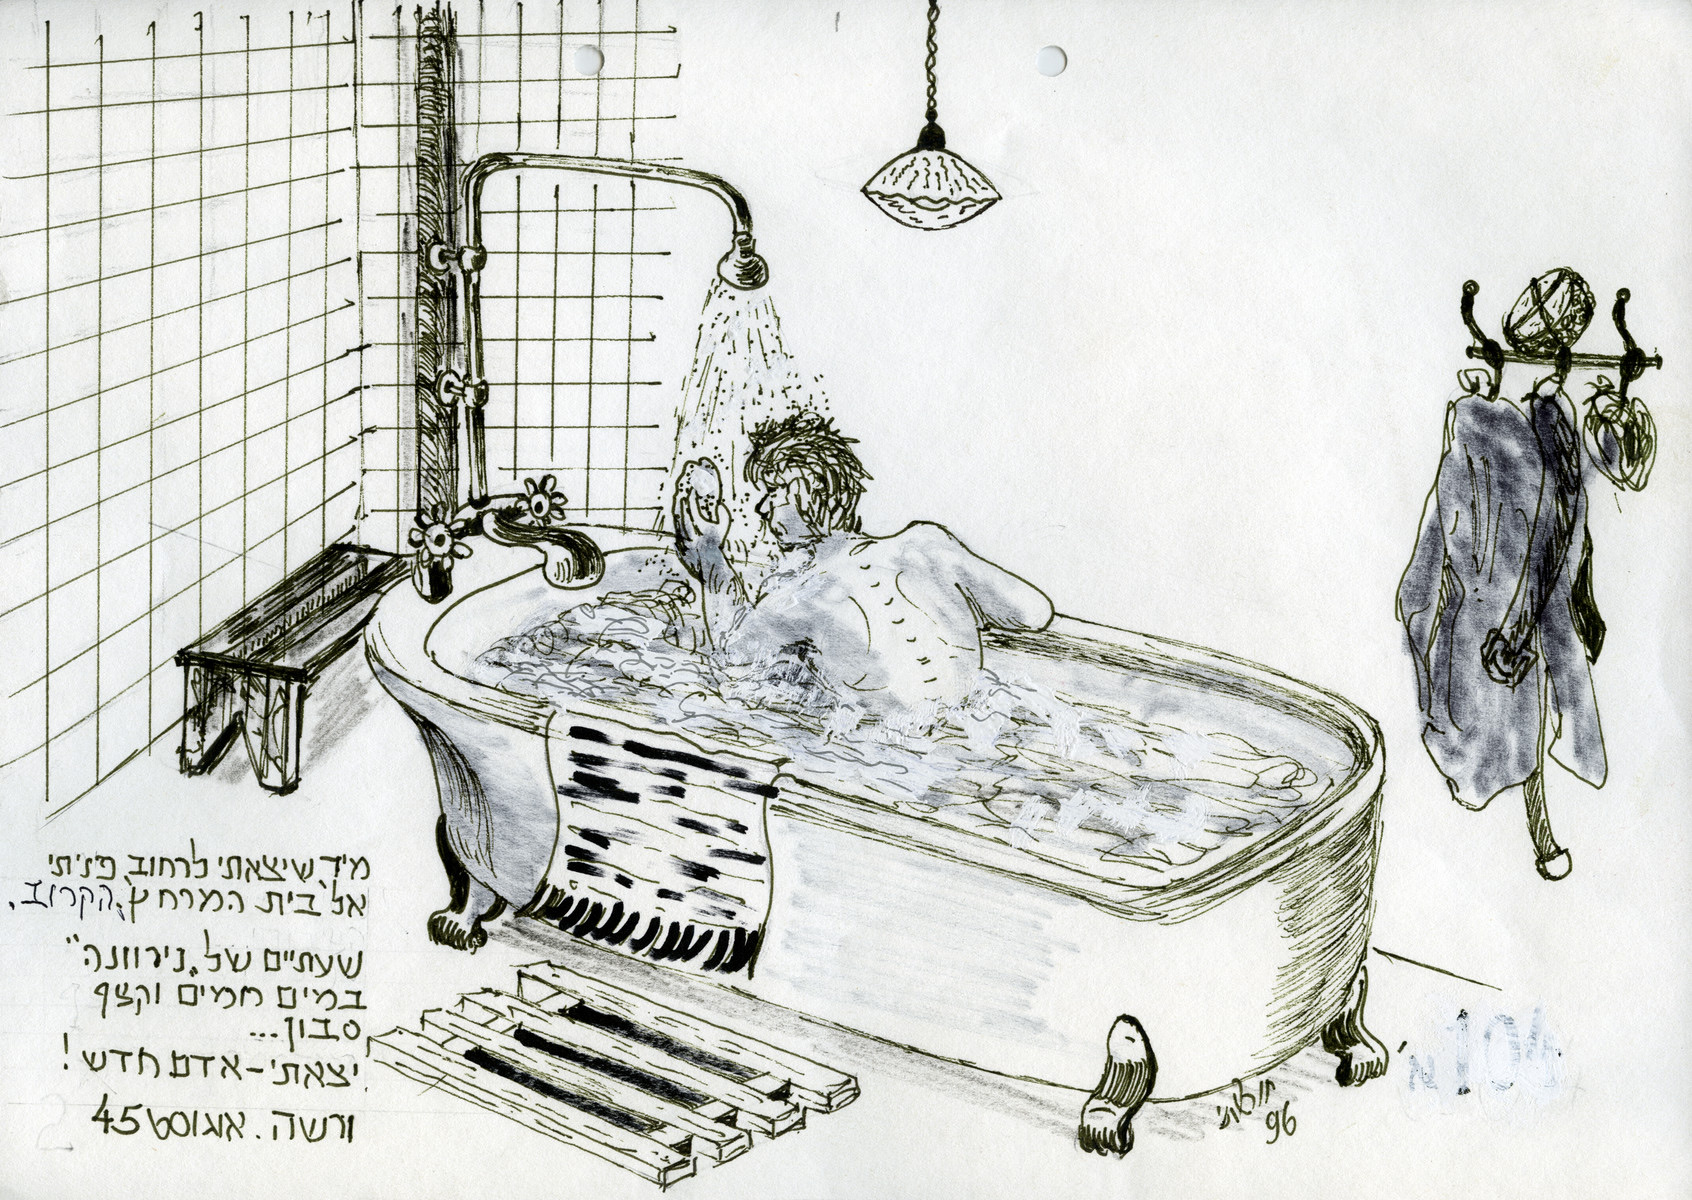 מיד שיצאתי לרחוב פניתי
אל בית המרחץ הקרוב.
שעתיים של „נירוונה"
במים חמים וקצף
סבון...
יצאתי – אדם חדש!
ורשה. אוגוסט 45
96